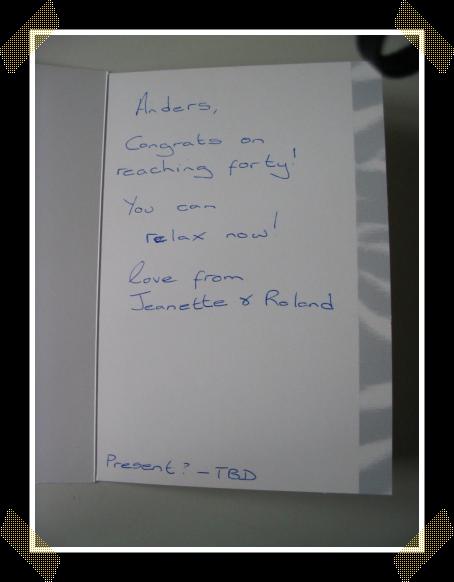 Anders,
Congrats on
reaching forty!
You can
relax now!
love from
Jeanette & Roland
Present? – TBD